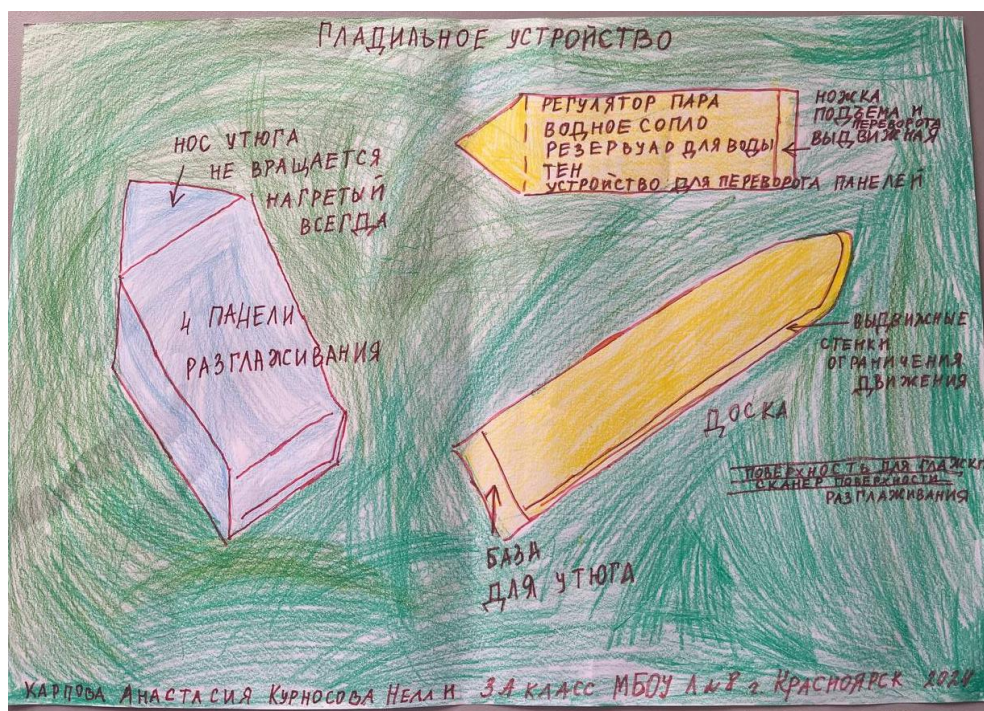 ГЛАДИЛЬНОЕ УСТРОЙСТВО
НОС УТЮГА
НЕ ВРАЩАЕТСЯ
НАГРЕТЫЙ
ВСЕГДА
4 ПАНЕЛИ
РАЗГЛАЖИВАНИЯ
РЕГУЛЯТОР ПАРА
ВОДНОЕ СОПЛО
РЕЗЕРВУАР ДЛЯ ВОДЫ
ТЕН
УСТРОЙСТВО ДЛЯ ПЕРЕВОРОТА ПАНЕЛЕЙ
НОЖКА
ПОДЪЕМА И
ПЕРЕВОРОТА
ВЫДВИЖНАЯ
ВЫДВИЖНЫЕ
СТЕНКИ
ОГРАНИЧЕНИЯ
ДВИЖЕНИЯ
ДОСКА
ПОВЕРХНОСТЬ ДЛЯ ГЛАЖКИ
СКАНЕР ПОВЕРХНОСТИ
РАЗГЛАЖИВАНИЯ
БАЗА
ДЛЯ УТЮГА
КАРПОВА АНАСТАСИЯ КУРНОСОВА НЕЛЛИ 3А КЛАСС МБОУ Л №8 г. КРАСНОЯРСК 2024